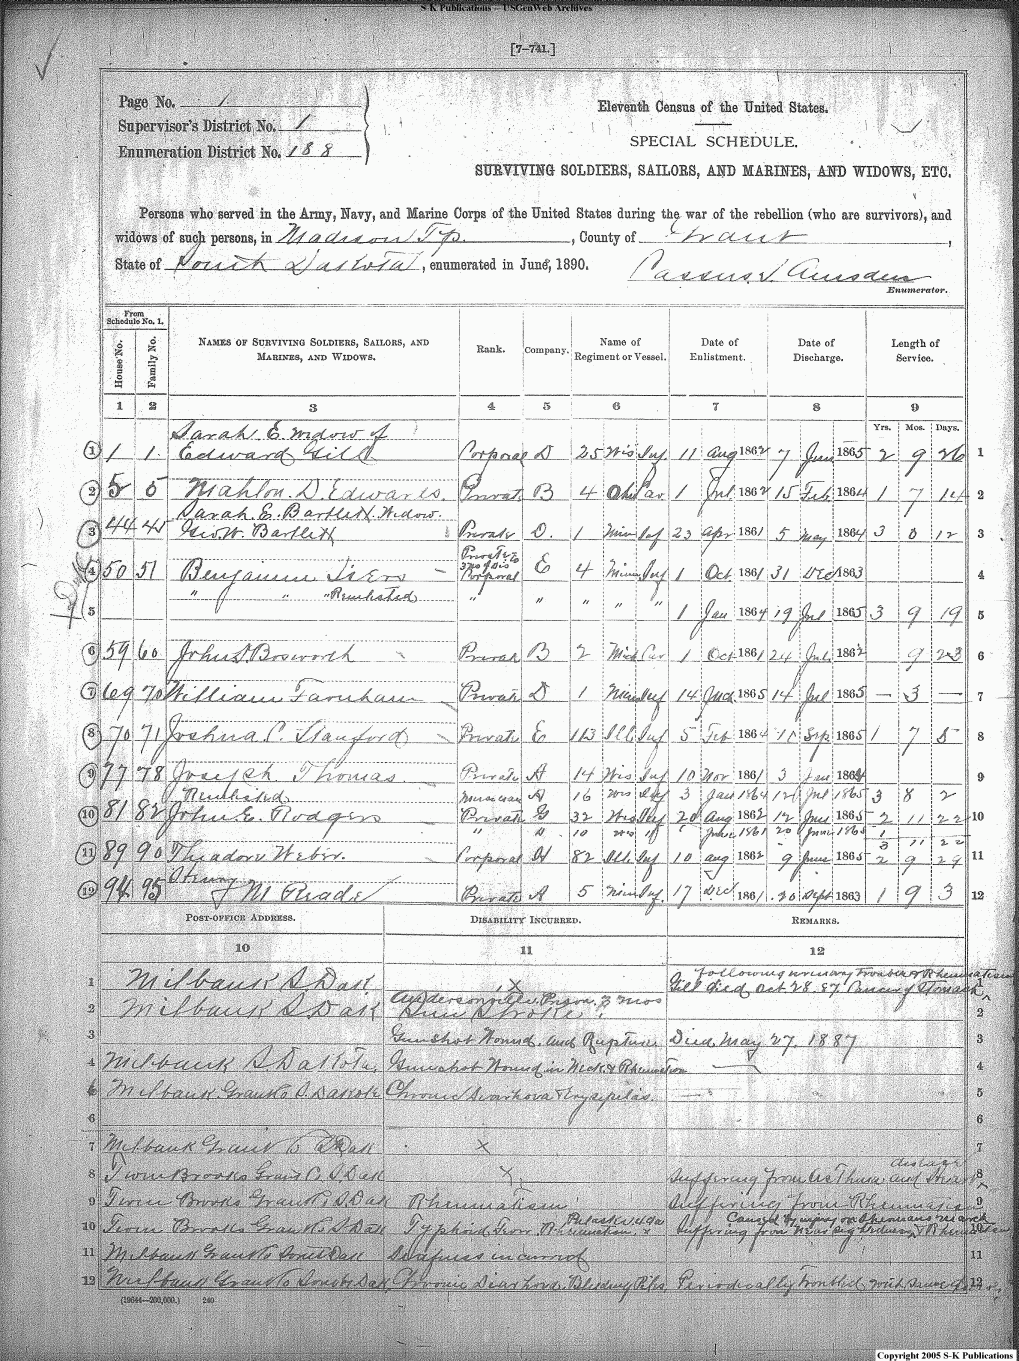 S-K Publications – USGenWeb Archives
[7–741.]
Page No. 1
Supervisor's District No. 1
Enumeration District No. 188
Eleventh Census of the United States.
SPECIAL SCHEDULE.
SURVIVING SOLDIERS, SAILORS, AND MARINES, AND WIDOWS, ETC.
Persons who served in the Army, Navy, and Marine Corps of the United States during the war of the rebellion (who are survivors), and
widows of such persons, in Madison Tp., County of Grant,
State of South Dakota, enumerated in June, 1890.
Enumerator.
From Schedule No. 1.
House No. Family No. Names of Surviving Soldiers, Sailors, and Marines, and Widows. Rank. Company. Name of Regiment or Vessel. Date of Enlistment. Date of Discharge. Length of Service.
1 2 3 4 5 6 7 8 9
Yrs. Mos. Days.
Sarah E. widow of
1 1 1 Edward Gill Corporal D 25 Wis Inf 11 Aug 1862 7 Jun 1865 2 9 26 1
2 5 5 Mahlon D. Edwards. Private B 4 Ohio Cav 1 Jul 1862 15 Feb 1864 1 7 14 2
Sarah E. Bartlett Widow.
3 44 45 Geo. W. Bartlett Private D. 1 Minn Inf 23 Apr 1861 5 May 1864 3 0 12 3
4 50 51 Benjamin Corporal E 4 Minn Inf 1 Oct 1861 31 Dec 1863 4
" " " Reenlisted " " " " "
5 1 Jan 1864 19 Jul 1865 3 9 19 5
6 59 60 John D. Bosworth Private B 2 Mich Cav 1 Oct 1861 24 Jul 1862 9 23 6
7 69 70 William Farnham Private D 1 Minn Inf 14 1865 14 Jul 1865 — 3 — 7
8 70 71 Joshua C. Stanford Private E 113 Ills Inf 5 Feb 1864 Sep 1865 1 7 5 8
9 77 78 Joseph Thomas Private A 14 Wis Inf 10 Nov 1861 3 Jan 1864 9
Reenlisted Musician A 16 Wis Inf 3 Jan 1864 12 Jul 1865 3 8 2
10 81 82 John E. Rodgers Private G 32 Wis Inf 20 Aug 1862 12 Jun 1865 2 11 22 10
3 11 22
11 89 90 Theadore Weber. Corporal H 82 Ills Inf 10 Aug 1862 9 June 1865 2 9 29 11
Henry
12 94 95 J M Reade Private A 5 Minn Inf. 17 Dec 1861 20 Sept 1863 1 9 3 12
Post-office Address. Disability Incurred. Remarks.
10 11 12
following urinary trouble & Rheumatism
1 Milbank S. Dak X Gill died Oct 28. 87 Cancer of Stomach 1
Andersonville Prison 3 mos
2 Milbank S Dak Sun Stroke. 2
3 Gunshot Wound. and Rupture Died May 27, 1887 3
4 Milbank S Dakota. Gunshot Wound in Neck & Rheumatism 4
Milbank. Grant Co S. Dakota Chronic Diarrhoea & Erysipelas. 5
6 6
7 Milbank Grant Co S Dak X 7
disease
8 Twin Brooks Grant Co S. Dak X Suffering from Asthma and Heart 8
9 Twin Brooks Grant Co S. Dak Rheumatism Suffering from Rheumatism 9
10 Twin Brooks Grant Co S. Dak Typhoid 10
11 Milbank Grant Co South Dak Deafness incurred 11
12 Milbank Grant Co South Dak Chronic Diarhoea. Bleeding Piles, Periodically troubled with same 12
(19644—200,000.) 249
Copyright 2005 S-K Publications